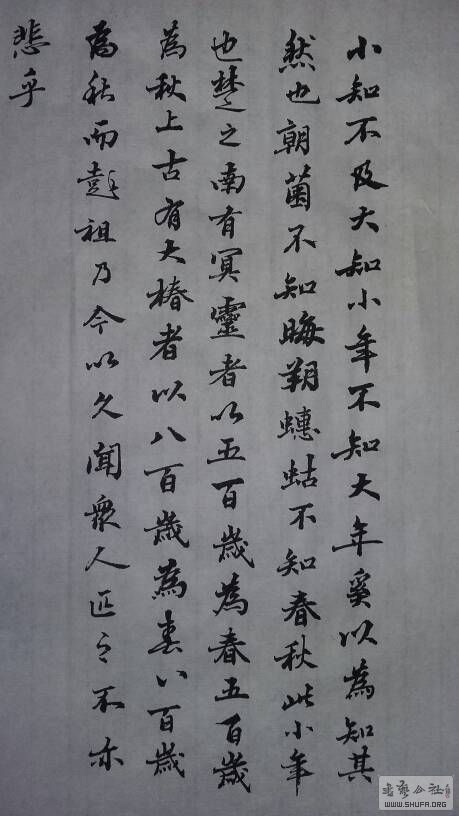 小知不及大知小年不知大年奚以為知其
然也朝菌不知晦朔蟪蛄不知春秋此小年
也楚之南有冥靈者以五百歲為春五百歲
為秋上古有大椿者以八百歲為春八百歲
為秋而彭祖乃今以久聞衆人匹之不亦
悲乎
WWW.SHUFA.ORG